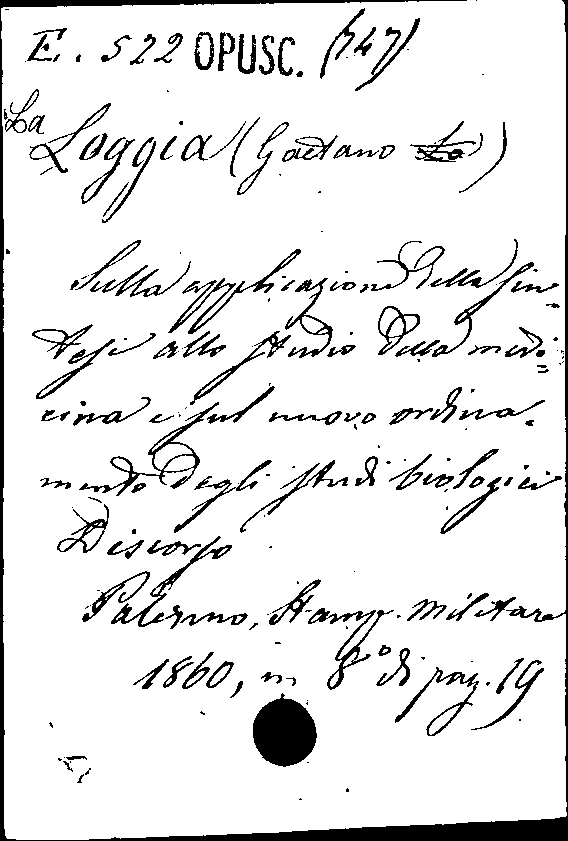 E. 522 OPUSC. (747)
La Loggia (Gaetano La)
Sulla applicazione della sin-
tesi allo studio della medi=
cina e sul nuovo ordina-
mento degli studi biologici
Discorso
Palermo, Stamp. Militare
1860, in 8° di pag. 19